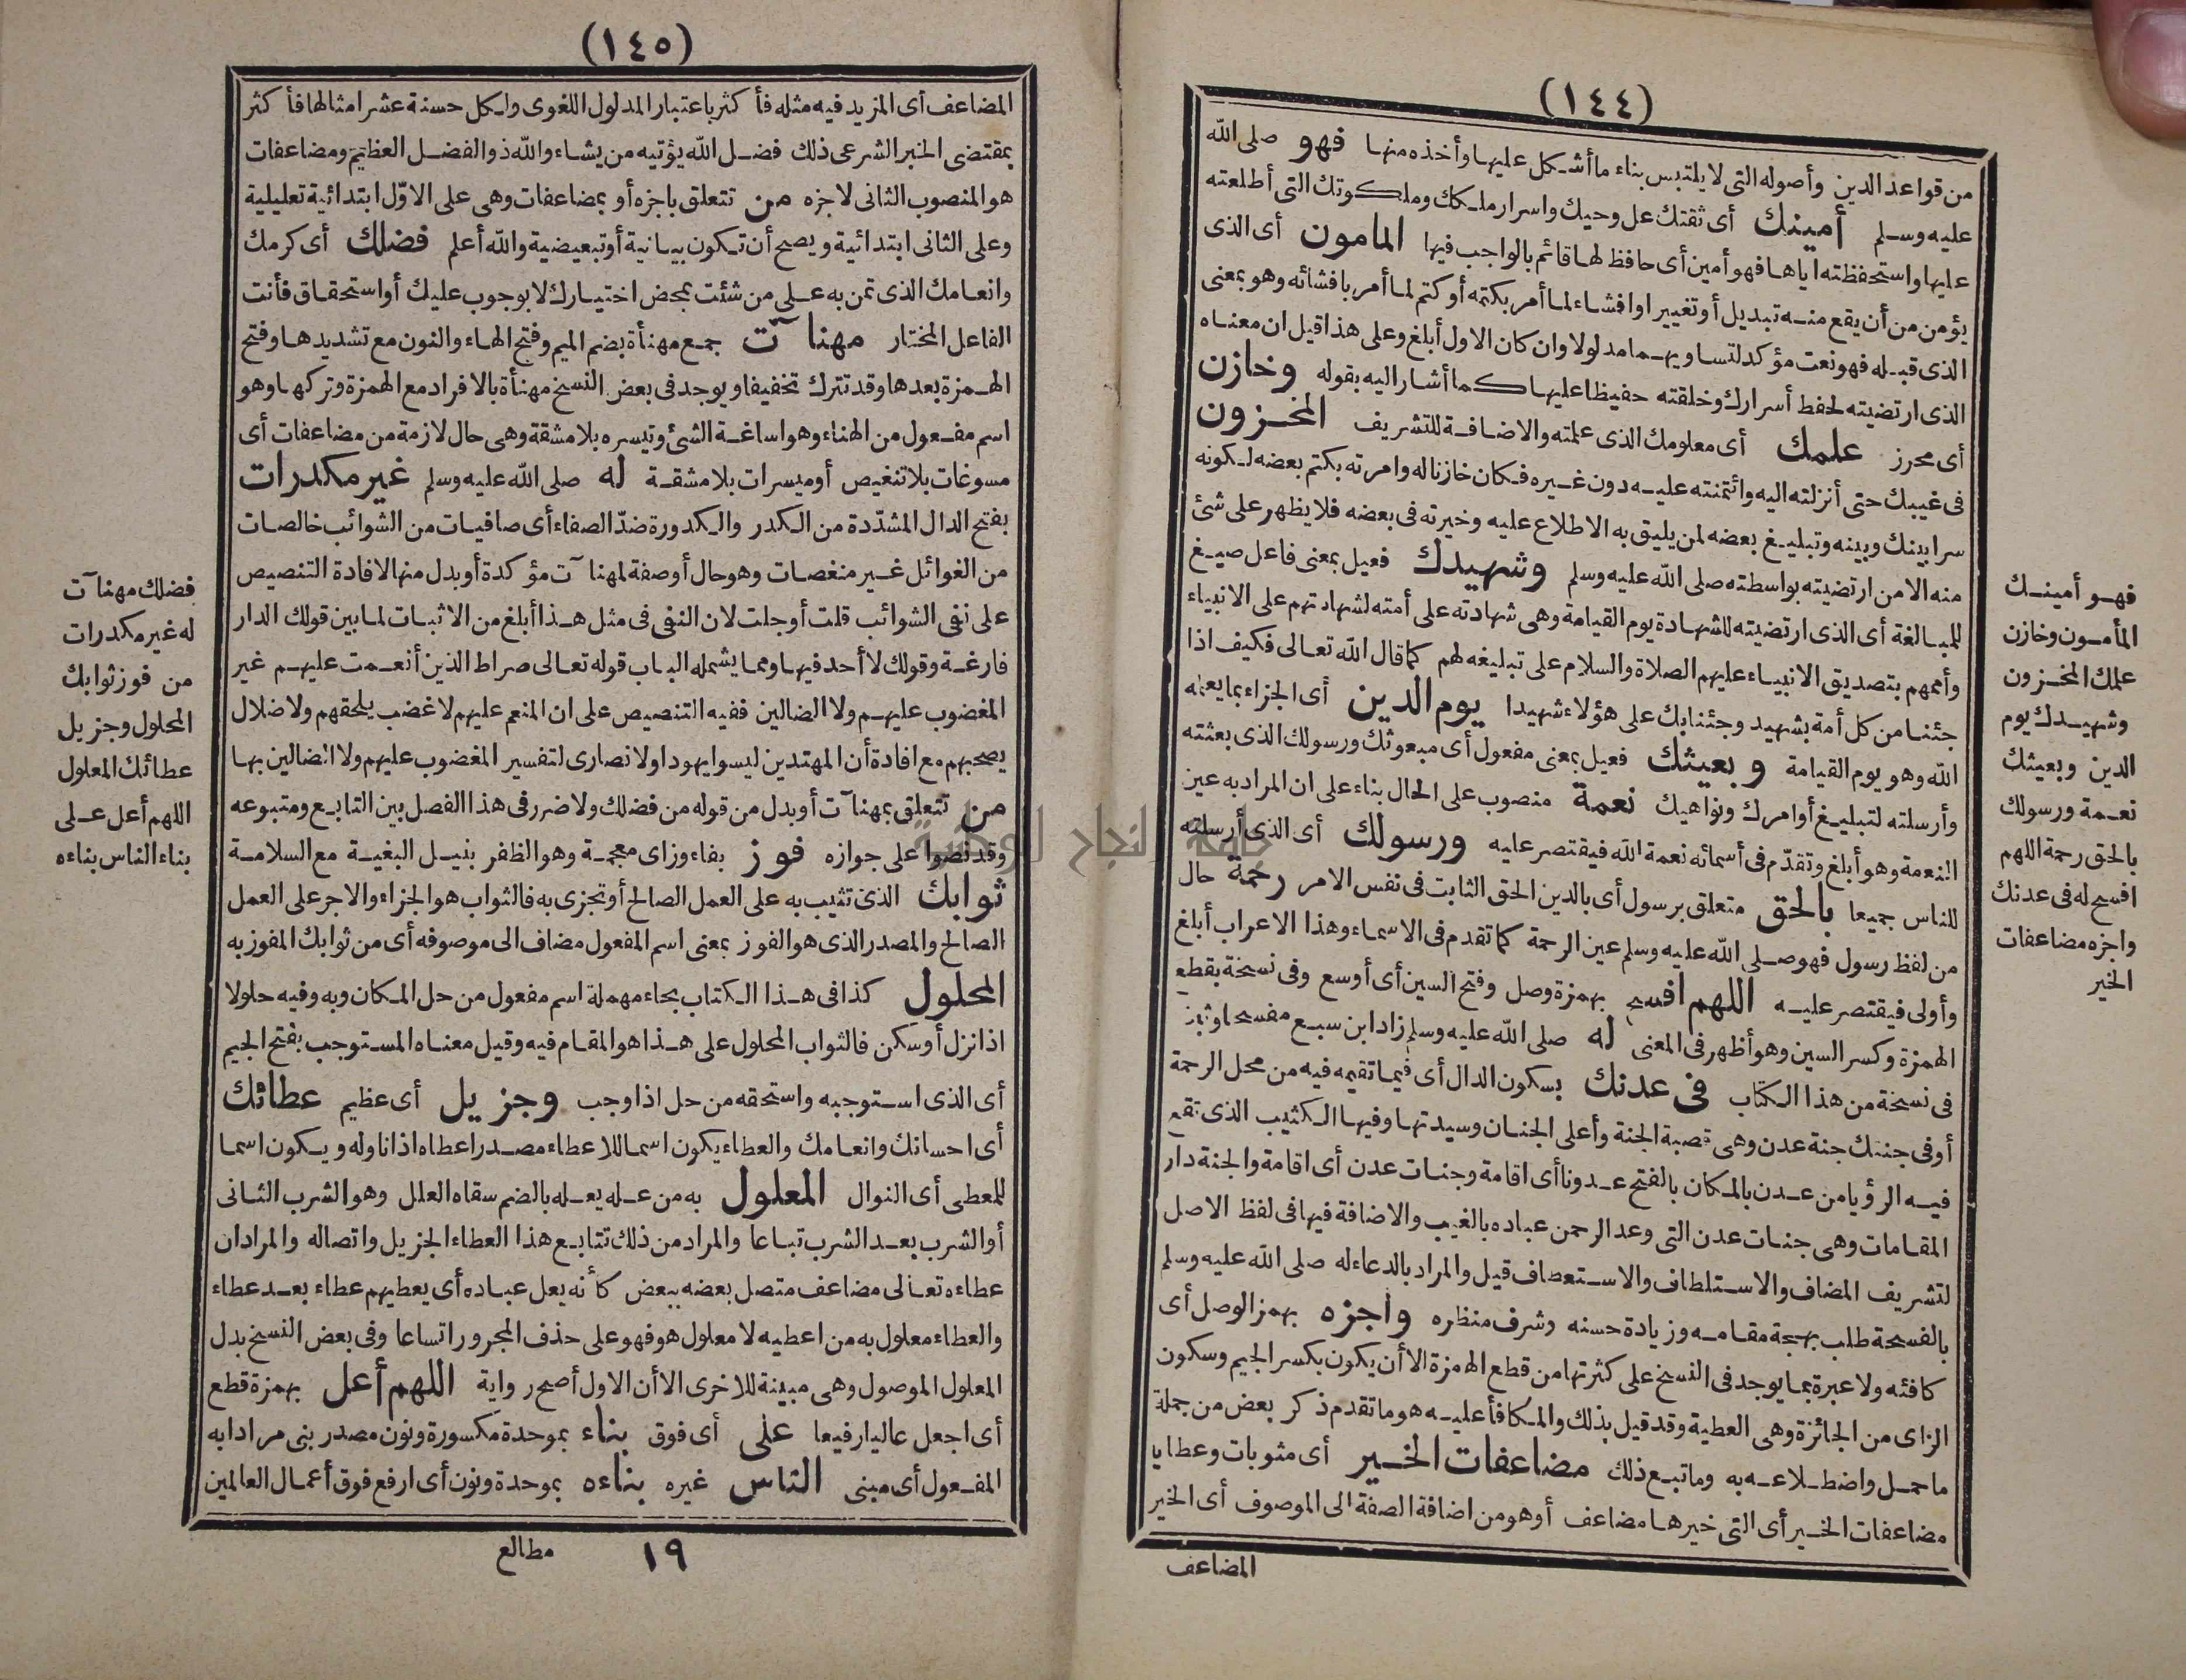 (١٤٤)
من قواعد الدين وأصوله التى لا يلتبس بناء ما أشكل عليها وأخذه منها فهو صلى الله
عليه وسلم أمينك أى ثقتك على وحيك واسرار ملكك وملكوتك التى أطلعته
عليها واستحفظته اياها فهو أمين أى حافظ لها قائم بالواجب فيها المامون أى الذى
يؤمن من أن يقع منه تبديل أو تغيير او افشاء لما أمر بكتمه أو كتم لما أمر بافشائه وهو بمعنى
الذى قبله فهو نعت مؤكد لتساويهما مدلولا وان كان الاول أبلغ وعلى هذا قيل ان معناه
الذى ارتضيته لحفظ أسرارك وخلقته حفيظا عليها كما أشار اليه بقوله وخازن
أى محرز علمك أى معلومك الذى علمته والاضافة للتشريف المخزون
فى غيبك حتى أنزلته اليه وائتمنته عليه دون غيره فكان خازنا له وامرته بكتم بعضه لكونه
سرا بينك وبينه وتبليغ بعضه لمن يليق به الاطلاع عليه وخيرته فى بعضه فلا يظهر على شئ
منه الا من ارتضيته بواسطته صلى الله عليه وسلم وشهيدك فعيل بمعنى فاعل صيغ
للمبالغة أى الذى ارتضيته للشهادة يوم القيامة وهى شهادته على أمته لشهادتهم على الانبياء
وأممهم بتصديق الانبياء عليهم الصلاة والسلام على تبليغه لهم كما قال الله تعالى فكيف اذا
جئنا من كل أمة بشهيد وجئنا بك على هؤلاء شهيدا يوم الدين أى الجزاء بما يعمله
الله وهو يوم القيامة وبعيثك فعيل بمعنى مفعول أى مبعوثك ورسولك الذى بعثته
وأرسلته لتبليغ أوامرك ونواهيك نعمة منصوب على الحال بناء على ان المراد به عين
النعمة وهو أبلغ وتقدّم فى أسمائه نعمة الله فيقتصر عليه ورسولك أى الذى أرسلته
للناس جميعا بالحق متعلق برسول أى بالدين الحق الثابت فى نفس الامر رحمة حال
من لفظ رسول فهو صلى الله عليه وسلم عين الرحمة كما تقدم فى الاسماء وهذا الاعراب أبلغ
وأولى فيقتصر عليه اللهم افسح بهمزة وصل وفتح السين أى أوسع وفى نسخة بقطع
الهمزة وكسر السين وهو أظهر فى المعنى له صلى الله عليه وسلم زاد ابن سبع مفسحا
فى نسخة من هذا الكتاب فى عدنك بسكون الدال أى فيما تقيمه فيه من محل الرحمة
أو فى جنتك جنة عدن وهى قصبة الجنة وأعلى الجنان وسيدتها وفيها الكثيب الذى تقع
فيه الرؤيا من عدن بالمكان بالفتح عدونا أى اقامة وجنات عدن أى اقامة والجنة دار
المقامات وهى جنات عدن التى وعد الرحمن عباده بالغيب والاضافة فيها فى لفظ الاصل
لتشريف المضاف والاستلطاف والاستعطاف قيل والمراد بالدعاء له صلى الله عليه وسلم
بالفسحة طلب بهجة مقامه وزيادة حسنه وشرف منظره واجزه بهمز الوصل أى
كافئه ولا عبرة بما يوجد فى النسخ على كثرتها من قطع الهمزة الا أن يكون بكسر الجيم وسكون
الزاى من الجائزة وهى العطية وقد قيل بذلك والمكافأ عليه هو ما تقدم ذكر بعض من جملة
ما حمل واضطلاعه به وما تبع ذلك مضاعفات الخير أى مثوبات وعطايا
مضاعفات الخير أى التى خيرها مضاعف أو هو من اضافة الصفة الى الموصوف أى الخير
المضاعف
فهو أمينك
المأمون وخازن
علمك المخزون
وشهيدك يوم
الدين وبعيثك
نعمة ورسولك
بالحق رحمة اللهم
افسح له فى عدنك
واجزه مضاعفات
الخير
(١٤٥)
المضاعف أى المزيد فيه مثله فأكثر باعتبار المدلول اللغوى ولكل حسنة عشر امثالها فأكثر
بمقتضى الخبر الشرعى ذلك فضل الله يؤتيه من يشاء والله ذو الفضل العظيم ومضاعفات
هو المنصوب الثانى لاجزه من تتعلق باجزه أو بمضاعفات وهى على الاوّل ابتدائية تعليلية
وعلى الثانى ابتدائية ويصح أن تكون بيانية أو تبعيضية والله أعلم فضلك أى كرمك
وانعامك الذى تمن به على من شئت بمحض اختيارك لا بوجوب عليك أو استحقاق فأنت
الفاعل المختار مهنا آت جمع مهنأة بضم الميم وفتح الهاء والنون مع تشديدها وفتح
الهمزة بعدها وقد تترك تخفيفا ويوجد فى بعض النسخ مهنأة بالافراد مع الهمزة وتركها وهو
اسم مفعول من الهناء وهو اساغة الشئ وتيسره بلا مشقة وهى حال لازمة من مضاعفات أى
مسوغات بلا تنغيص أو ميسرات بلا مشقة له صلى الله عليه وسلم غير مكدرات
بفتح الدال المشدّدة من الكدر والكدورة ضدّ الصفاء أى صافيات من الشوائب خالصات
من الغوائل غير منغصات وهو حال أو صفة لمهنا آت مؤكدة أو بدل منها لافادة التنصيص
على نفى الشوائب قلت أو جلت لان النفى فى مثل هذا أبلغ من الاثبات لما بين قولك الدار
فارغة وقولك لا أحد فيها ومما يشمله الباب قوله تعالى صراط الذين أنعمت عليهم غير
المغضوب عليهم ولا الضالين ففيه التنصيص على ان المنعم عليهم لا غضب يلحقهم ولا ضلال
يصحبهم مع افادة أن المهتدين ليسوا يهودا ولا نصارى لتفسير المغضوب عليهم ولا الضالين بها
من تتعلق بمهنا آت أو بدل من قوله من فضلك ولا ضرر فى هذا الفصل بين التابع ومتبوعه
وقد نصوا على جوازه فوز بفاء وزاى معجمة وهو الظفر بنيل البغية مع السلامة
ثوابك الذى تثيب به على العمل الصالح أو تجزى به فالثواب هو الجزاء والاجر على العمل
الصالح والمصدر الذى هو الفوز بمعنى اسم المفعول مضاف الى موصوفه أى من ثوابك المفوز به
المحلول كذا فى هذا الكتاب بحاء مهملة اسم مفعول من حل المكان وبه وفيه حلولا
اذا نزل أو سكن فالثواب المحلول على هذا هو المقام فيه وقيل معناه المستوجب بفتح الجيم
أى الذى استوجبه واستحقه من حل اذا وجب وجزيل أى عظيم عطائك
أى احسانك وانعامك والعطاء يكون اسما للاعطاء مصدر اعطاه اذا ناوله ويكون اسما
للمعطى أى النوال المعلول به من عله يعله بالضم سقاه العلل وهو الشرب الثانى
أو الشرب بعد الشرب تباعا والمراد من ذلك تتابع هذا العطاء الجزيل واتصاله والمراد ان
عطاءه تعالى مضاعف متصل بعضه ببعض كأنه يعل عباده أى يعطيهم عطاء بعد عطاء
والعطاء معلول به من اعطيه لا معلول هو فهو على حذف المجرور اتساعا وفى بعض النسخ بدل
المعلول الموصول وهى مبينة للاخرى الا أن الاول أصح رواية اللهم أعل بهمزة قطع
أى اجعل عاليا رفيعا على أى فوق بناء بموحدة مكسورة ونون مصدر بنى مرادا به
المفعول أى مبنى الناس غيره بناءه بموحدة ونون أى ارفع فوق أعمال العالمين
١٩ مطالع
فضلك مهنا آت
له غير مكدرات
من فوز ثوابك
المحلول وجزيل
عطائك المعلول
اللهم أعل على
بناء الناس بناءه